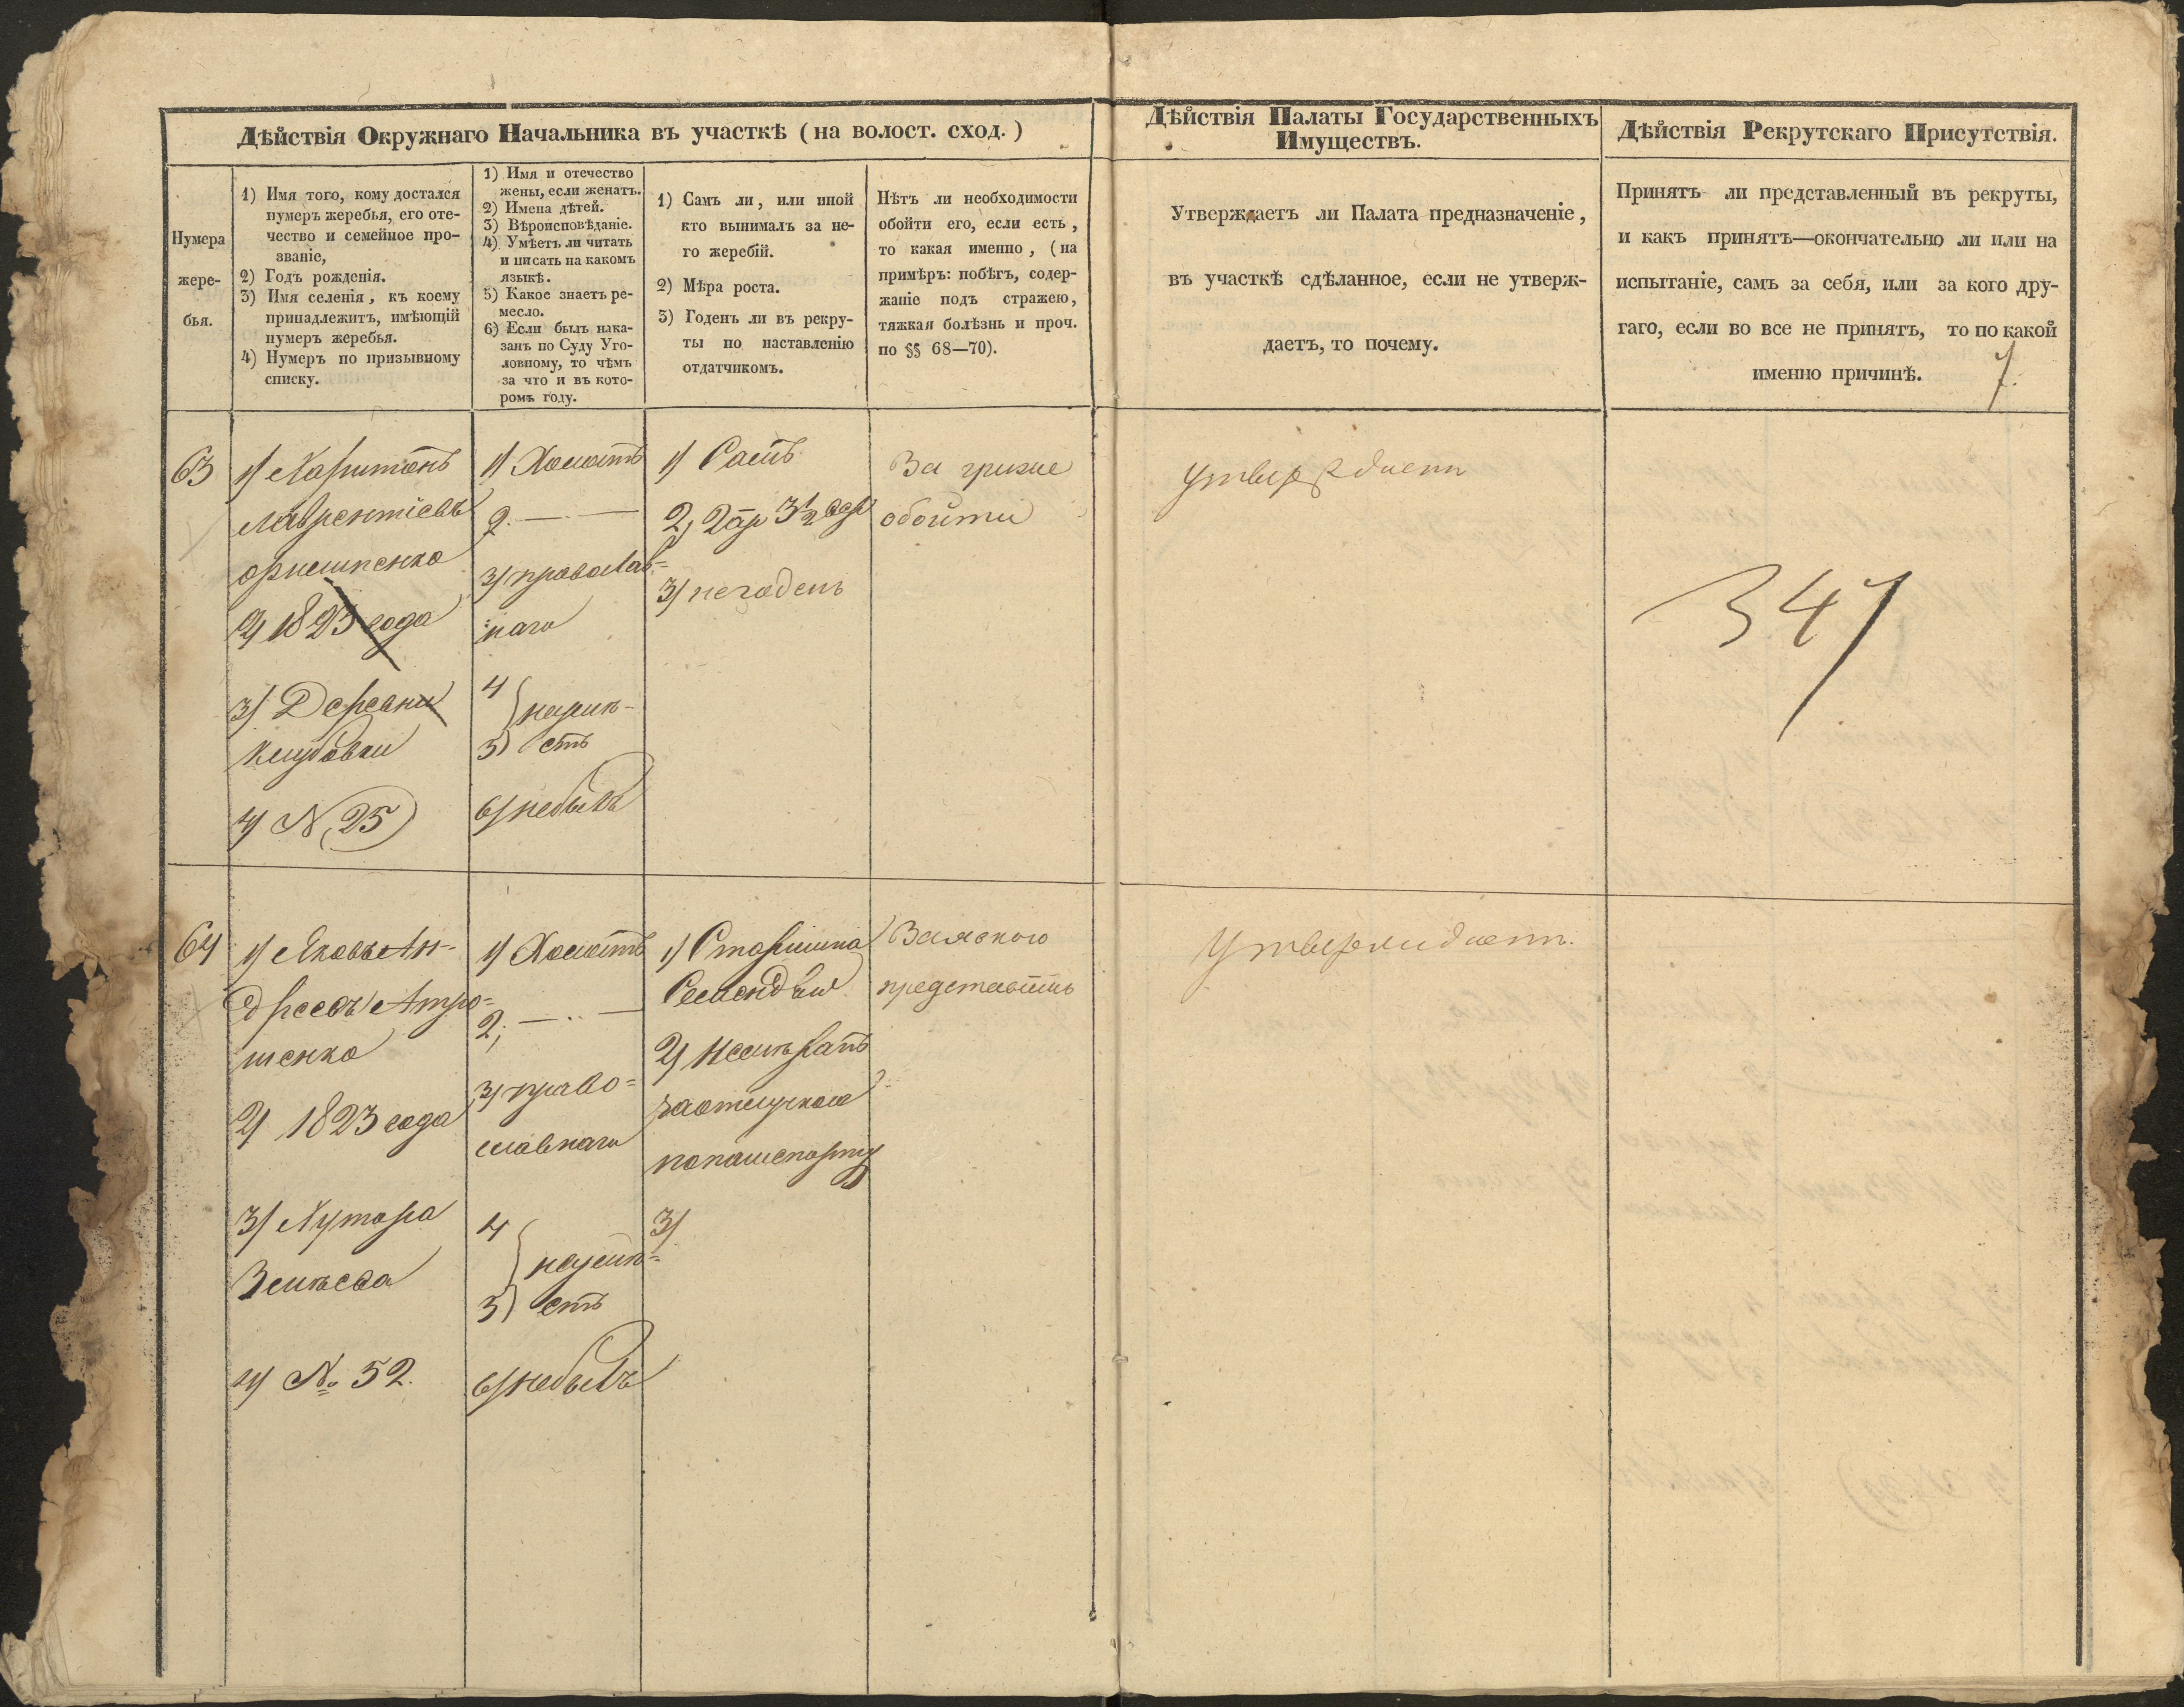 Дѣйствія Окружнаго Начальника въ участкѣ (на волост. сход.)
Нумера
жере-
бья.
1) Имя того, кому достался
нумеръ жеребья, его оте-
чество и семейное про-
званіе,
2) Годъ рожденія.
3) Имя селенія, къ коему
принадлежитъ, имѣющій
нумеръ жеребья.
4) Нумеръ по призывному
списку.
1) Имя и отечество
жены, если женатъ.
2) Имена дѣтей.
3) Вѣроисповѣданіе.
4) Умѣетъ ли читать
и писать на какомъ
языкѣ.
5) Какое знаетъ ре-
месло.
6) Если былъ нака-
занъ по Суду Уго-
ловному, то чѣмъ
за что и въ кото-
ромъ году.
1) Самъ ли, или иной
кто вынималъ за не-
го жеребій.
2) Мѣра роста.
3) Годенъ ли въ рекру-
ты по наставленію
отдатчикомъ.
Нѣтъ ли необходимости
обойти его, если есть,
то какая именно, (на
примѣръ: побѣгъ, содер-
жаніе подъ стражею,
тяжкая болѣзнь и проч.
по §§ 68—70).
Дѣйствія Палаты Государственныхъ
Имуществъ.
Утверждаетъ ли Палата предназначеніе,
въ участкѣ сдѣланное, если не утверж-
даетъ, то почему.
Дѣйствія Рекрутскаго Присутствія.
Принятъ ли представленный въ рекруты,
и какъ принятъ—окончательно ли или на
испытаніе, самъ за себя, или за кого дру-
гаго, если во все не принятъ, то по какой
именно причинѣ.
63
1) Харитонъ
Лаврентіевъ
2) 1823 года
3) Деревни
4) N 25
1) Холостъ
2. — —
3) православ=
наго
4
5)
6) небылъ
1) Самъ
2) 2 ар 3½ вер
3) негоденъ
За
обойти
утверждает
34
64
1) Яковъ Ан-
дреевъ Атро=
шенко
2) 1823 года
3) Хутора
4) № 52.
1) Холостъ
2; — .. —
3) право=
славнаго
4
5)
6) небылъ
1) Старшина
2)
попашепорту
3)
представить
Утверждает.